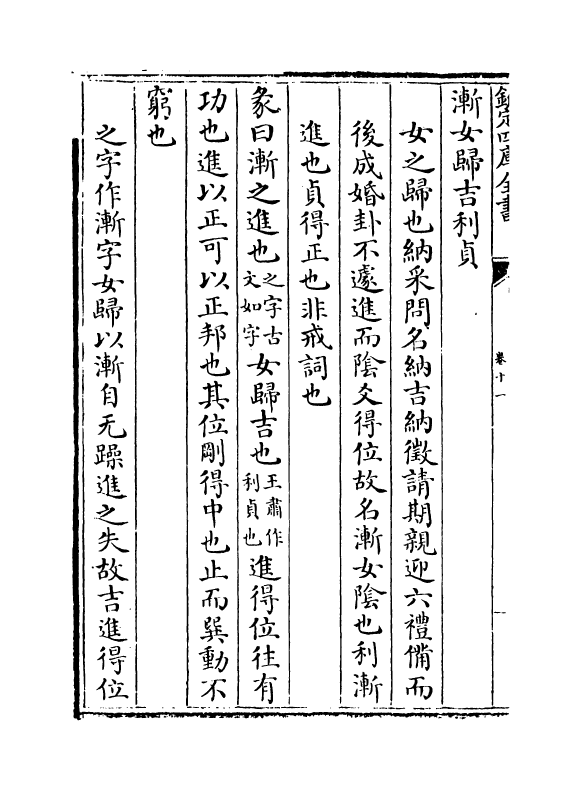 欽定四庫全書
卷十一
漸女歸吉利貞
女之歸也納采問名納吉納徵請期親迎六禮備而
後成婚卦不遽進而陰爻得位故名漸女陰也利漸
進也貞得正也非戒詞也
彖曰漸之進也之字古文如字女歸吉也王肅作利貞也進得位往有
功也進以正可以正邦也其位剛得中也止而巽動不
窮也
之字作漸字女歸以漸自无躁進之失故吉進得位